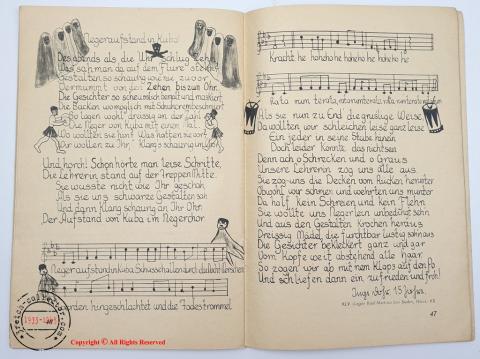 Negeraufstand in Kuba
Des abends als die Uhr schlug zehn
Was sah man da auf dem Flure stehn
Gestalten so schaurig wie nie zuvor
Vermummt von den Zehen bis zum Ohr.
Die Gesichter so scheusslich bemalt und maskiert
Die Backen womöglich mit Schuhcrem beschmiert
So lagen wohl dreissig an der Zahl
Die Neger von Kuba mit einem Mal
Wo wollten sie hin? Was hatten sie vor?
Wir wollen zu Ihr! Klang's schaurig im Chor
Und horch! Schon hörte man leise Schritte,
Die Lehrerin stand auf der Treppen Mitte.
Sie wusste nicht wie Ihr geschah,
Als sie uns schwarze Gestalten sah
Und dann Klang schaurig an Ihr Ohr
Der Aufstand von Kuba im Negerchor
Negeraufstand in Kuba Schüsse hallen durch die Nacht
werden hingeschlachtet und die Todestrommel
Kracht he hohoho he hohoho he hohoho he
Als sie nun zu End die gruslige Weise
Da wollten wir schleichen leise ganz leise
Ein jeder in seine Stube hinein
Doch leider konnte das nicht sein
Denn ach o Schrecken und o Graus
Unsere Lehrerin zog uns alle aus
Sie zog uns die Decken vom Rücken herunter
Obwohl wir schrien und wehrten uns munter
Da half kein Schreien und kein Flehn
Sie wollte uns Negerlein unbedingt sehn
Und aus den Gestalten krochen heraus
Dreissig Mädel, die furchtbar lustig sahn aus
Die Gesichter bekleckert ganz und gar
Vom Kopfe weit abstehend alle Haar
So zogen wir ab mit nem Klaps auf den Po
Und schliefen dann ein zufrieden und froh!
15 Jahre.
47
1933-1945
Copyright © All Rights Reserved